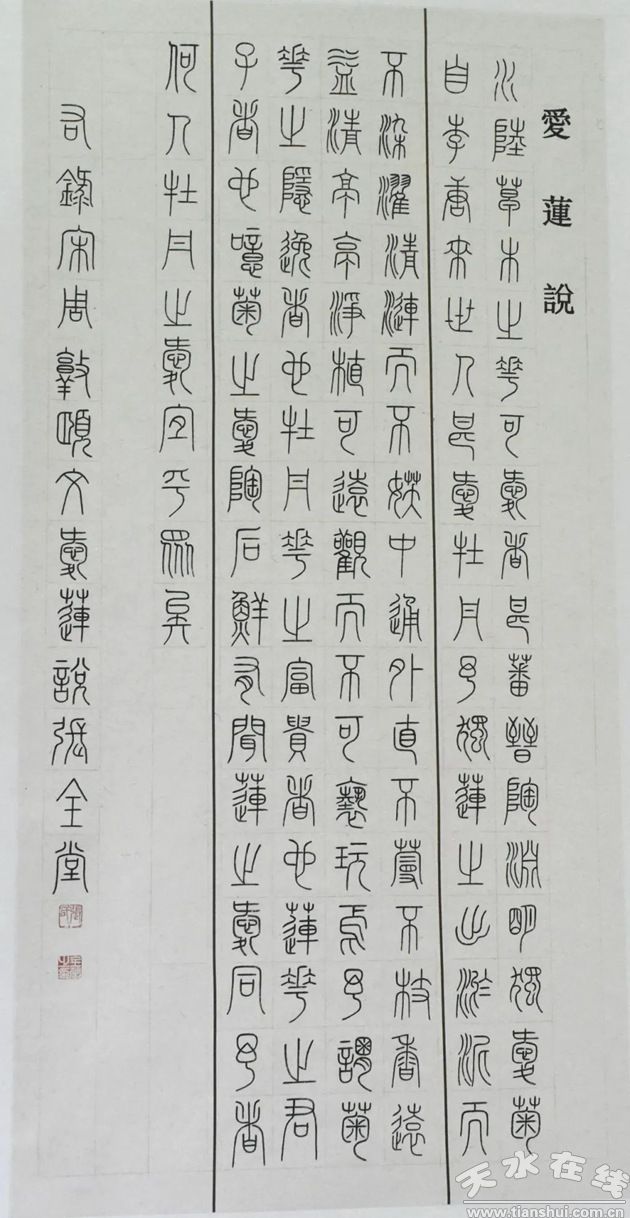 愛蓮說
水陸草木之華可愛者甚蕃晉陶淵明獨愛菊
自李唐來世人甚愛牡丹予獨蓮之出淤泥而
不染濯清漣而不妖中通外直不蔓不枝香遠
益清亭亭淨植可遠觀而不可褻玩焉予謂菊
華之隱逸者也牡丹華之富貴者也蓮華之君
子者也噫菊之愛陶后鮮有聞蓮之愛同予者
何人牡丹之愛宜乎眾矣
右錄宋周敦頤文愛蓮說張全堂
天水在线
www.tianshui.com.cn